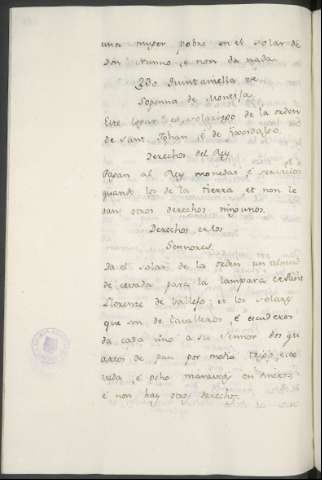 una muger pobre en el solar de
Don Nunno, e non da nada.
Quintaniella de
Sopenna de Moneşa
Este logar es solariego de la orden
de Sant Johan, e de
Derechos del Rey
Pagan al Rey monedas e servicios
quando los de la tierra, et non le
dan otros derechos ningunos.
Derechos de los
Sennores
Da el solar de la orden un almud
de cevada para la lampara
Llorente de Vallejo; et los solares
que son de Cavalleros, e escuderos
da cada uno a su sennor dos qu
artos de pan por medio trigo, e ce
vada, e ocho maravedis en dineros,
e non hay otros derechos.